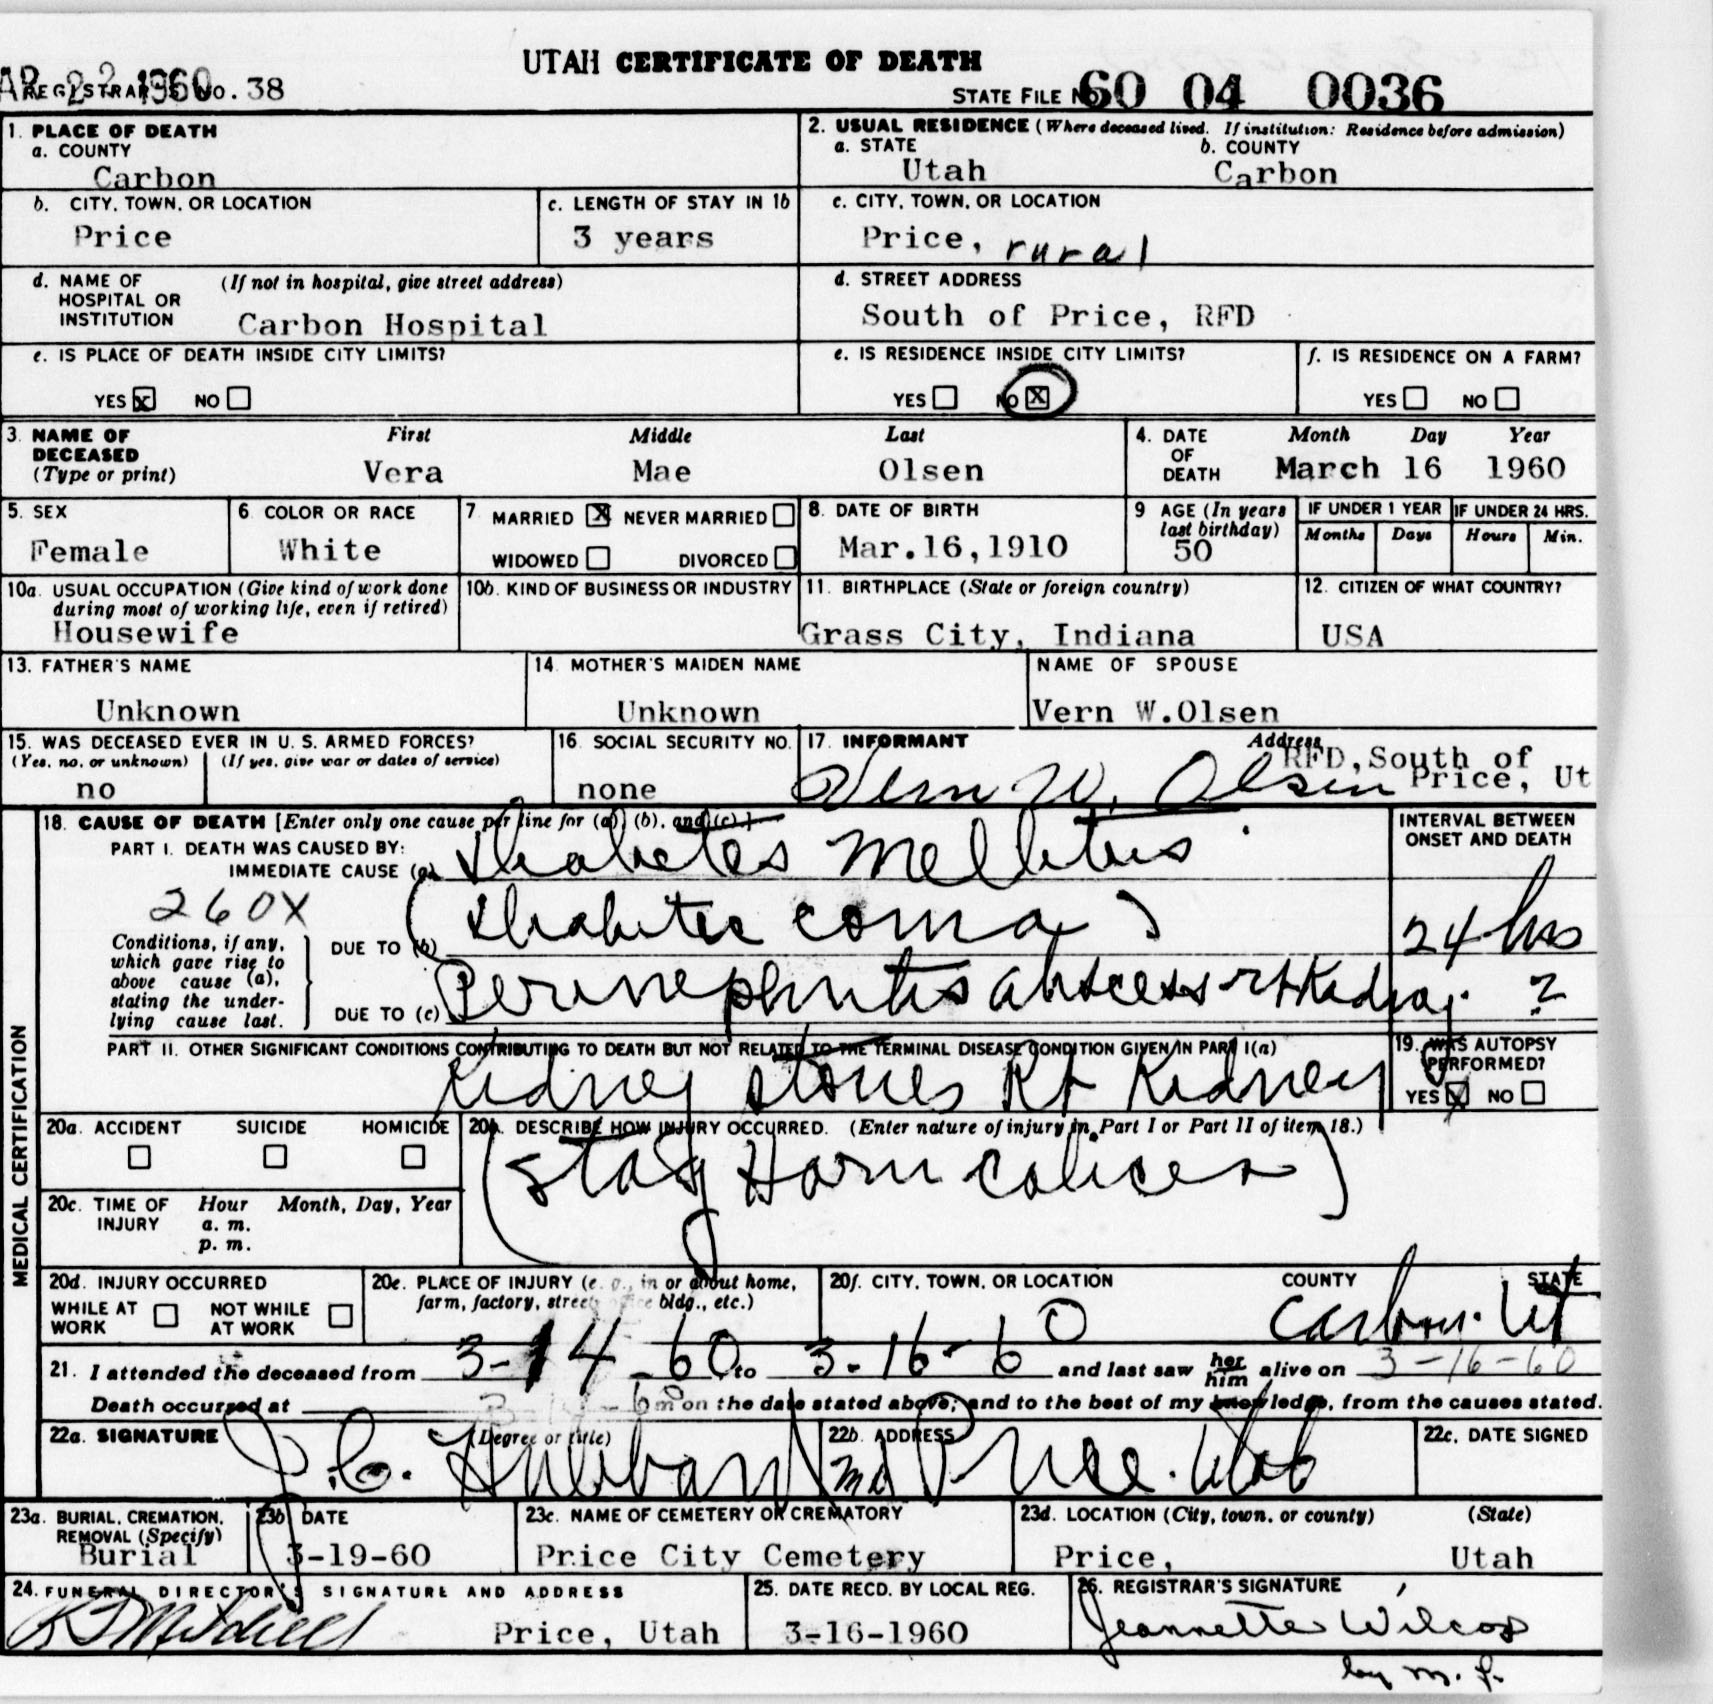 UTAH CERTIFICATE OF DEATH
AP 22 1960
REGISTRAR'S NO. 38
STATE FILE NO. 60 04 0036
1. PLACE OF DEATH
a. COUNTY
Carbon
2. USUAL RESIDENCE (Where deceased lived. If institution: Residence before admission)
a. STATE
Utah
b. COUNTY
Carbon
b. CITY, TOWN, OR LOCATION
Price
c. LENGTH OF STAY IN 1b
3 years
c. CITY, TOWN, OR LOCATION
Price, rural
d. NAME OF HOSPITAL OR INSTITUTION
(If not in hospital, give street address)
Carbon Hospital
d. STREET ADDRESS
South of Price, RFD
e. IS PLACE OF DEATH INSIDE CITY LIMITS?
YES X NO
e. IS RESIDENCE INSIDE CITY LIMITS?
YES NO X
f. IS RESIDENCE ON A FARM?
YES NO
3. NAME OF DECEASED
(Type or print)
First Middle Last
Vera Mae Olsen
4. DATE OF DEATH
Month Day Year
March 16 1960
5. SEX
Female
6. COLOR OR RACE
White
7. MARRIED X NEVER MARRIED
WIDOWED DIVORCED
8. DATE OF BIRTH
Mar.16,1910
9. AGE (In years last birthday)
50
IF UNDER 1 YEAR
Months Days
IF UNDER 24 HRS.
Hours Min.
10a. USUAL OCCUPATION (Give kind of work done during most of working life, even if retired)
Housewife
10b. KIND OF BUSINESS OR INDUSTRY
11. BIRTHPLACE (State or foreign country)
Grass City, Indiana
12. CITIZEN OF WHAT COUNTRY?
USA
13. FATHER'S NAME
Unknown
14. MOTHER'S MAIDEN NAME
Unknown
NAME OF SPOUSE
Vern W.Olsen
15. WAS DECEASED EVER IN U. S. ARMED FORCES?
(Yes, no, or unknown) (If yes, give war or dates of service)
no
16. SOCIAL SECURITY NO.
none
17. INFORMANT
Vern W. Olsen
Address
RFD, South of
Price, Ut
MEDICAL CERTIFICATION
18. CAUSE OF DEATH [Enter only one cause per line for (a), (b), and (c).]
INTERVAL BETWEEN ONSET AND DEATH
PART I. DEATH WAS CAUSED BY:
IMMEDIATE CAUSE (a) Diabetes Mellitus
260X
Conditions, if any, which gave rise to above cause (a), stating the underlying cause last.
DUE TO (b) (Diabetic coma) 24 hrs
DUE TO (c) Perinephritis abscess rt Kidney. ?
PART II. OTHER SIGNIFICANT CONDITIONS CONTRIBUTING TO DEATH BUT NOT RELATED TO THE TERMINAL DISEASE CONDITION GIVEN IN PART I(a)
Kidney stones Rt Kidney
(Stag Horn calices)
19. WAS AUTOPSY PERFORMED?
YES X NO
20a. ACCIDENT SUICIDE HOMICIDE
20b. DESCRIBE HOW INJURY OCCURRED. (Enter nature of injury in Part I or Part II of item 18.)
20c. TIME OF INJURY
Hour Month, Day, Year
a. m.
p. m.
20d. INJURY OCCURRED
WHILE AT WORK NOT WHILE AT WORK
20e. PLACE OF INJURY (e. g., in or about home, farm, factory, street, office bldg., etc.)
20f. CITY, TOWN, OR LOCATION COUNTY STATE
Carbon. Ut
21. I attended the deceased from 3-14-60 to 3-16-60 and last saw her him alive on 3-16-60
Death occurred at m on the date stated above; and to the best of my knowledge, from the causes stated.
22a. SIGNATURE (Degree or title)
J. C. Hubbard Md
22b. ADDRESS
Price. Utah
22c. DATE SIGNED
23a. BURIAL, CREMATION, REMOVAL (Specify)
Burial
23b. DATE
3-19-60
23c. NAME OF CEMETERY OR CREMATORY
Price City Cemetery
23d. LOCATION (City, town, or county) (State)
Price, Utah
24. FUNERAL DIRECTOR'S SIGNATURE AND ADDRESS
Price, Utah
25. DATE RECD. BY LOCAL REG.
3-16-1960
26. REGISTRAR'S SIGNATURE
Jeannette Wilcox
by m. J.